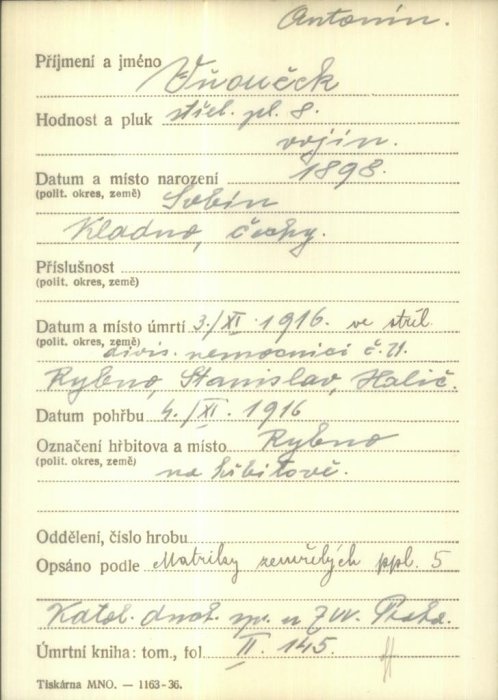 Antonín.
Příjmení a jméno Vňouček
Hodnost a pluk střel. pl. 8.
vojín.
Datum a místo narození 1898.
(polit. okres, země) Sobín
Kladno, Čechy.
Příslušnost
(polit. okres, země)
Datum a místo úmrtí 3./XI. 1916. ve stříl.
(polit. okres, země) divis. nemocnici č. 21.
Rybno, Stanislav, Halič.
Datum pohřbu 4./XI. 1916
Označení hřbitova a místo Rybno
(polit. okres, země) na hřbitově.
Oddělení, číslo hrobu
Opsáno podle Matriky zemřelých ppl. 5
Katol. duch. spr. u ZVV. Praha.
Úmrtní kniha: tom., fol. II. 145.
Tiskárna MNO. — 1163-36.